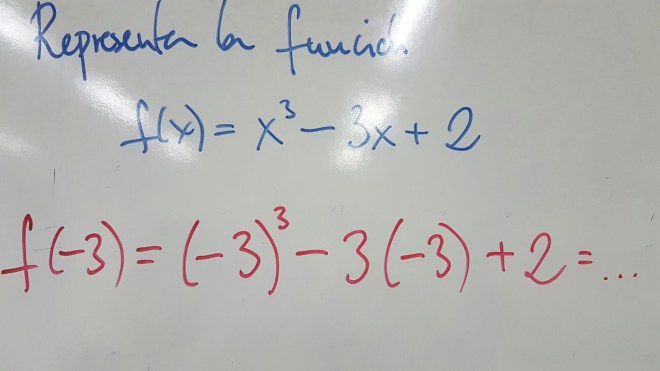 Representa la función
f(x) = x³ − 3x + 2
f(−3) = (−3)³ − 3(−3) + 2 = ...